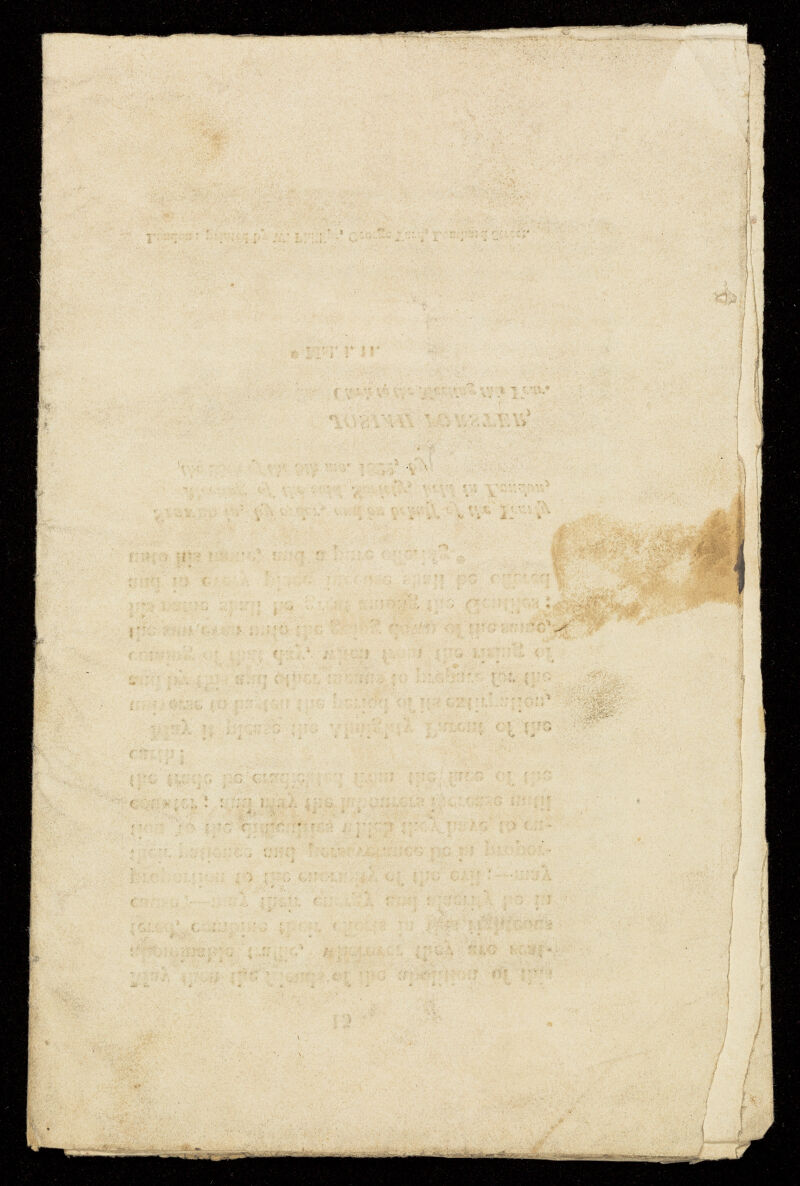 15
May then the friends of the abolition of this
abominable traffic, wherever they are scat-
tered, combine their efforts in this righteous
cause;—may their energy and alacrity be in
proportion to the enormity of the evil;—may
their patience and perseverance be in propor-
tion to the difficulties which they have to en-
counter; and may the labourers increase until
the trade be eradicated from the face of the
earth!
May it please the Almighty Parent of the
universe to hasten the period of its extirpation,
and by this and other means to prepare for the
coming of that day, when from the rising of
the sun, even unto the going down of the same,
his name shall be great among the Gentiles;
and in every place incense shall be offered
unto his name, and a pure offering.*
SIGNED in, by order, and on behalf of the Yearly
Meeting of the said Society, held in London,
the of the 5th mo. 1822, by
JOSIAH FORSTER,
Clerk to the Meeting this Year.
* Mal. i. 11.
London: printed by W. Phillips, George Yard, Lombard Street.